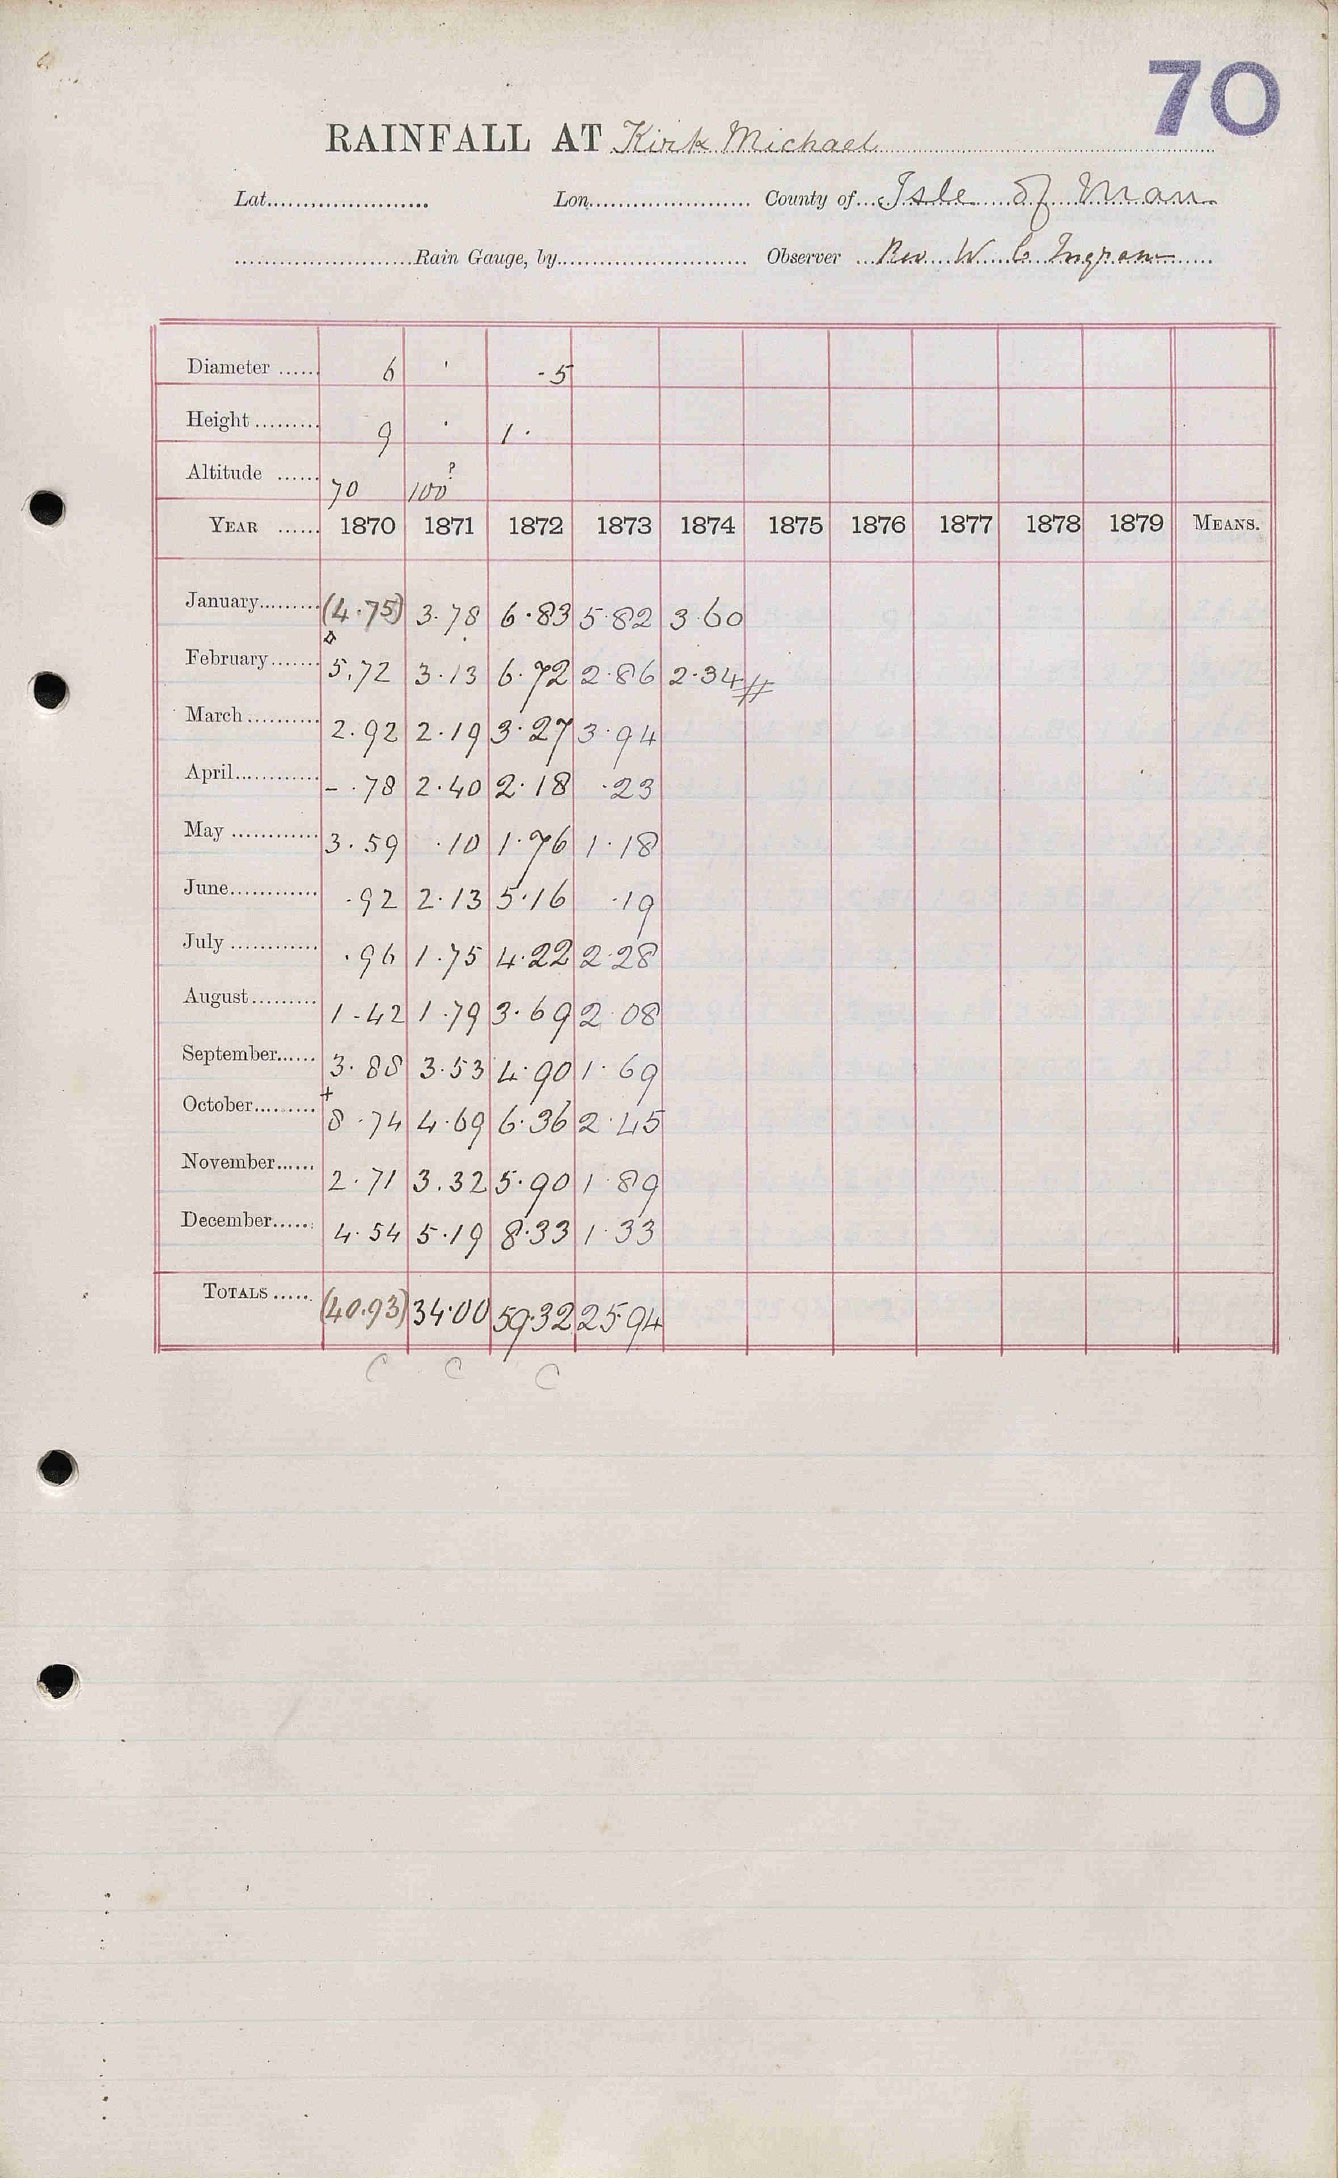 70
RAINFALL AT Kirk Michael
Lat. Lon. County of Isle of Man
Rain Gauge, by Observer Rev W C Ingram
Diameter 6 ' -5
Height 9 ' 1.
Altitude 70 100?
YEAR 1870 1871 1872 1873 1874 1875 1876 1877 1878 1879 MEANS.
January (4.75) 3.78 6.83 5.82 3.60
February 5.72 3.13 6.72 2.86 2.34 #
March 2.92 2.19 3.27 3.94
April - .78 2.40 2.18 .23
May 3.59 .10 1.76 1.18
June .92 2.13 5.16 .19
July .96 1.75 4.22 2.28
August 1.42 1.79 3.69 2.08
September 3.88 3.53 4.90 1.69
October + 8.74 4.69 6.36 2.45
November 2.71 3.32 5.90 1.89
December 4.54 5.19 8.33 1.33
TOTALS (40.93) 34.00 59.32 25.94
C C C